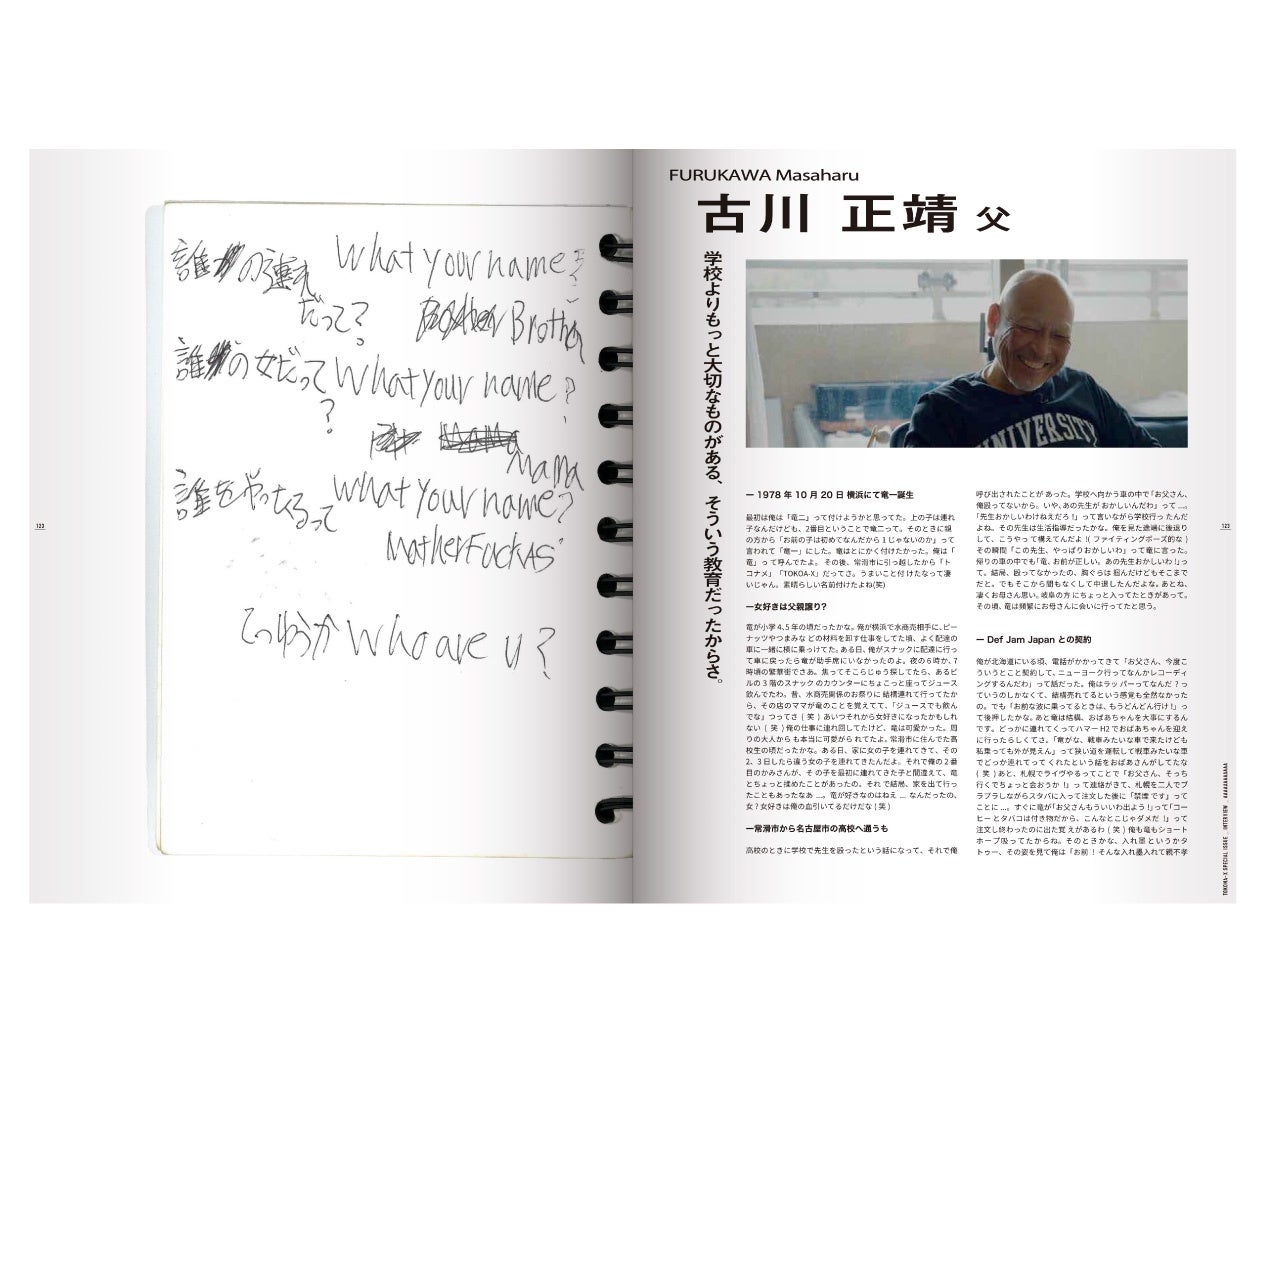 誰の連れ What your name?
だって? Brother
誰の女だって What your name?
?
MaMa
誰をやったるって What your name?
MotherFuckAS
てっゆうか Who are u?
123
FURUKAWA Masaharu
古川 正靖 父
学校よりもっと大切なものがある、そういう教育だったからさ。
— 1978 年 10 月 20 日 横浜にて竜一誕生
最初は俺は「竜二」って付けようかと思ってた。上の子は連れ
子なんだけども、2番目ということで竜二って。そのときに親
の方から「お前の子は初めてなんだから 1 じゃないのか」って
言われて「竜一」にした。竜はとにかく付けたかった。俺は「
竜」って呼んでたよ。その後、常滑市に引っ越したから「ト
コナメ」「TOKOA-X」だってさ。うまいこと付けたなって凄
いじゃん。素晴らしい名前付けたよね(笑)
—女好きは父親譲り?
竜が小学 4､5 年の頃だったかな。俺が横浜で水商売相手に、ピー
ナッツやつまみな どの材料を卸す仕事をしてた頃、よく配達の
車に一緒に横に乗っけてた。ある日、俺がスナックに配達に行っ
て車に戻ったら竜が助手席にいなかったのよ。夜の 6 時か、7
時頃の繁華街でさあ。焦ってそこらじゅう探してたら、あるビ
ルの 3 階のスナックのカウンターにちょこっと座ってジュース
飲んでたわ。昔、水商売関係のお祭りに 結構連れて行ってたか
ら、その店のママが竜のことを覚えてて、「ジュースでも飲ん
でな」つってさ ( 笑 ) あいつそれから女好きになったかもしれ
ない ( 笑 ) 俺の仕事に連れ回してたけど、竜は可愛かった。周
りの大人から も本当に可愛がられてたよ。常滑市に住んでた高
校生の頃だったかな。ある日、家に女の子を連れてきて、その
2、3 日したら違う女の子を連れてきたんだよ。それで俺の 2 番
目のかみさんが、その子を最初に連れてきた子と間違えて、竜
とちょっと揉めたことがあったの。それ で結局、家を出て行っ
たこともあったなあ ...。竜が好きなのはねえ ... なんだったの、
女? 女好きは俺の血引いてるだけだな ( 笑 )
—常滑市から名古屋市の高校へ通うも
高校のときに学校で先生を殴ったという話になって、それで俺
呼び出されたことが あった。学校へ向かう車の中で「お父さん、
俺殴ってないから。いや、あの先生が おかしいんだわ」って ...。
「先生おかしいわけねえだろ !」って言いながら学校行っ たんだ
よね。その先生は生活指導だったかな。俺を見た途端に後退り
して、こうやっ て構えてんだよ !( ファイティングポーズ的な )
その瞬間「この先生、やっぱりおかしいわ」って竜に言った。
帰りの車の中でも「竜、お前が正しい。あの先生おかしいわ !」っ
て。結局、殴ってなかったの、胸ぐらは 掴んだけどもそこまで
だと。でもそこから間もなくして中退したんだよな。あとね、
凄くお母さん思い。岐阜の方にちょっと入ってたときがあって。
その頃、竜は頻繁にお母さんに会いに行ってたと思う。
— Def Jam Japan との契約
俺が北海道にいる頃、電話がかかってきて「お父さん、今度こ
ういうとこと契約して、ニューヨーク行ってなんかレコーディ
ングするんだわ」って話だった。俺はラッ パーってなんだ ? っ
ていうのしかなくて、結構売れてるという感覚も全然なかった
の。でも「お前な波に乗ってるときは、もうどんどん行け !」っ
て後押したかな。あと竜は結構、おばあちゃんを大事にするん
です。どっかに連れてくってハマー H2 でおばあちゃんを迎え
に行ったらしくてさ。「竜がな、戦車みたいな車で来たけども
私乗っても外が見えん」って狭い道を運転して戦車みたいな車
でどっか連れてってくれたという話をおばあさんがしてたな
( 笑 ) あと、札幌でライヴやるってことで「お父さん、そっち
行くでちょっと会おうか !」って連絡がきて、札幌を二人でブ
ラブラしながらスタバに入って注文した後に「禁煙 です」って
ことに ...。すぐに竜が「お父さんもういいわ出よう !」って「コー
ヒー とタバコは付き物だから、こんなとこじゃダメだ !」って
注文し終わったのに出た覚 えがあるわ ( 笑 ) 俺も竜もショート
ホープ吸ってたからね。そのときかな、入れ墨 というかタ
トゥー、その姿を見て俺は「お前 ! そんな入れ墨入れて親不孝
123
TOKONA-X SPECIAL ISSUE INTERVIEW